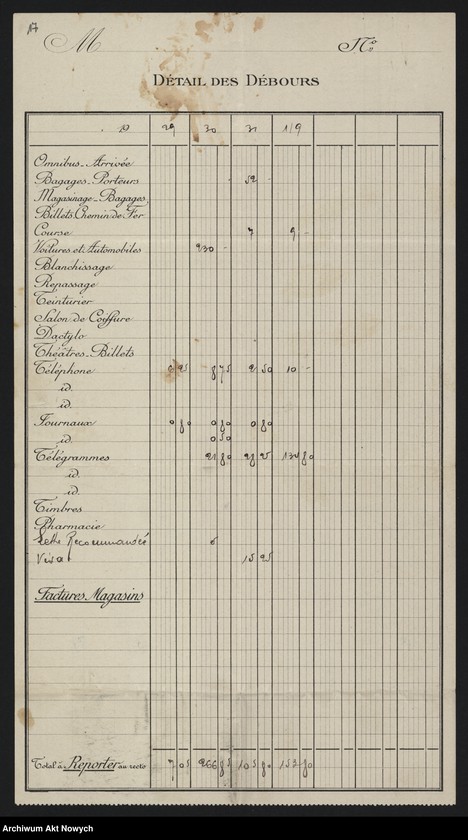 17
M Nº
DÉTAIL DES DÉBOURS
19 29 30 31 1/9
Omnibus-Arrivée
Bagages-Porteurs 52 -
Magasinage-Bagages
Billets Chemin de Fer
Course 7 9 -
Voitures et Automobiles 230 -
Blanchissage
Repassage
Teinturier
Salon de Coiffure
Dactylo
Théâtres-Billets
Téléphone 8 75 2 50 10 -
id.
id.
Journaux 0 80 0 80 0 80
id. 0 50
Télégrammes
id.
id.
Timbres
Pharmacie
Lettre Recommandée 6
Visa
Factures Magasins
Total à Reporter au recto 7 05
Archiwum Akt Nowych